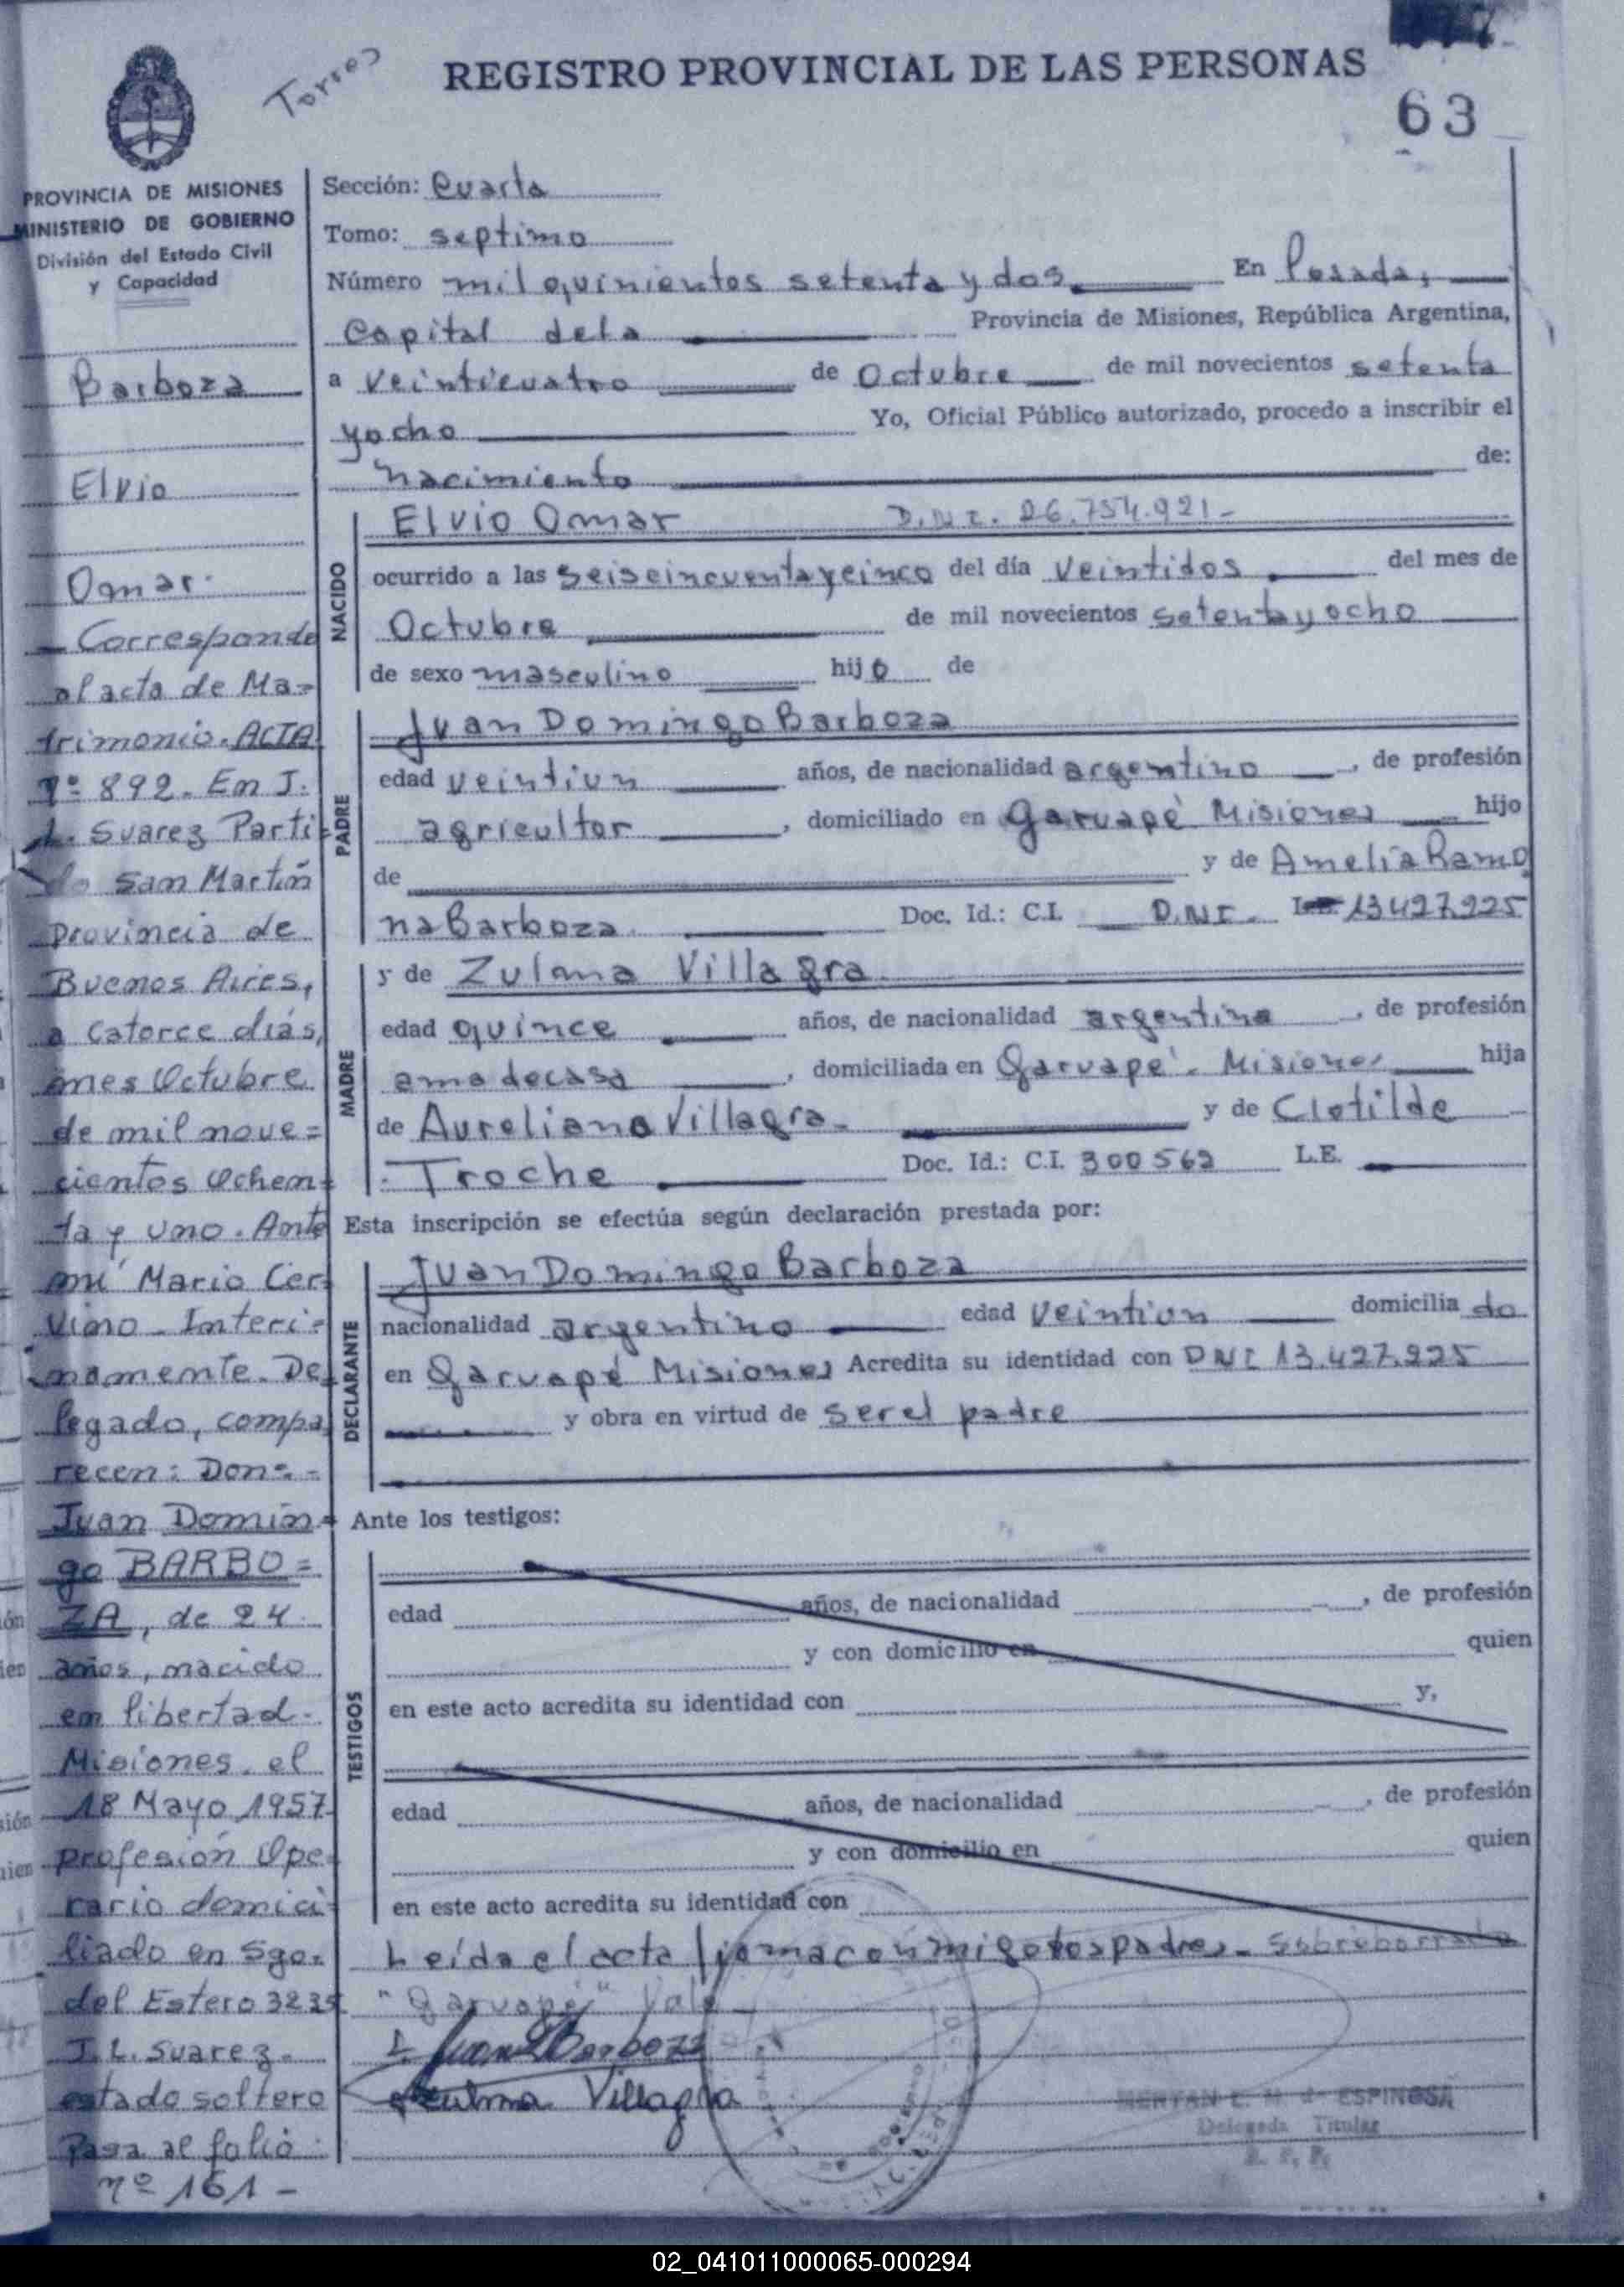 Torres
REGISTRO PROVINCIAL DE LAS PERSONAS
63
PROVINCIA DE MISIONES
MINISTERIO DE GOBIERNO
División del Estado Civil
y Capacidad
Barboza
Elvio
Omar.
Corresponde
al acta de Ma=
trimonio. ACTA
nº 892. En J.
L. Suarez Parti
do San Martín
Provincia de
Buenos Aires,
a catorce días,
mes Octubre
de mil nove=
cientos Ochen=
ta y uno. Ante
mí Mario Cer=
vino. Interi=
namente. De=
legado, compa
recen: Don=
Juan Domin=
go BARBO=
ZA, de 24
años, nacido
en libertad.
Misiones. el
18 Mayo 1957
profesión Ope=
rario domici
liado en Sgo.
del Estero 3235
J.L. Suarez
estado soltero
Pasa al folio
nº 161 -
Sección: Cuarta
Tomo: septimo
Número mil quinientos setenta y dos. En Posadas,
Capital dela Provincia de Misiones, República Argentina,
a veinticuatro de Octubre de mil novecientos setenta
yocho Yo, Oficial Público autorizado, procedo a inscribir el
nacimiento de:
NACIDO
Elvio Omar D.N.I. 26.754.921-
ocurrido a las seiscincuentaycinco del día veintidos del mes de
Octubre de mil novecientos setentayocho
de sexo masculino hijo de
PADRE
Juan Domingo Barboza
edad veintiun años, de nacionalidad argentino, de profesión
agricultor, domiciliado en Garuapé Misiones hijo
de y de Amelia Ramo
na Barboza. Doc. Id.: C.I. D.N.I. 13.427.925
MADRE
y de Zulma Villagra.
edad quince años, de nacionalidad argentina, de profesión
ama decasa, domiciliada en Garuapé - Misiones hija
de Aureliano Villagra. y de Clotilde
Troche Doc. Id.: C.I. 300562 L.E.
Esta inscripción se efectúa según declaración prestada por:
DECLARANTE
Juan Domingo Barboza
nacionalidad argentino edad veintiun domicilia do
en Garuapé Misiones Acredita su identidad con DNI 13.427.925
y obra en virtud de serel padre
Ante los testigos:
TESTIGOS
edad años, de nacionalidad, de profesión
y con domicilio en quien
en este acto acredita su identidad con y,
edad años, de nacionalidad, de profesión
y con domicilio en quien
en este acto acredita su identidad con
Leída el acta firmaconmigolospadres. Sobreborrado
"Garuapé" Vale
Juan D Barboza
Zulma Villagra
ESPINOSA
Delegada Titular
R. P. P.
02_041011000065-000294